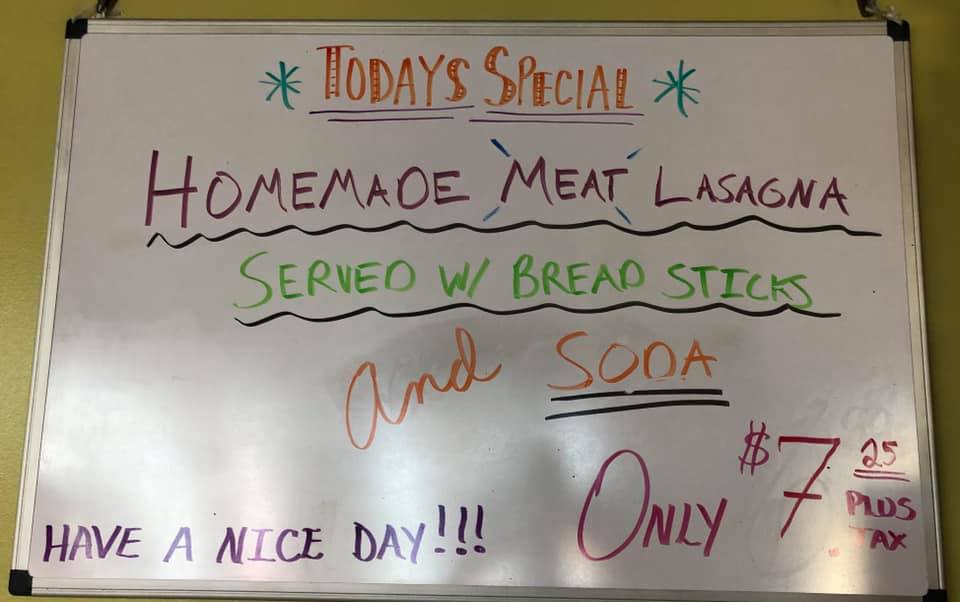 * TODAYS SPECIAL *
HOMEMADE MEAT LASAGNA
SERVED W/ BREAD STICKS
and SODA
ONLY $7.25 PLUS TAX
HAVE A NICE DAY!!!